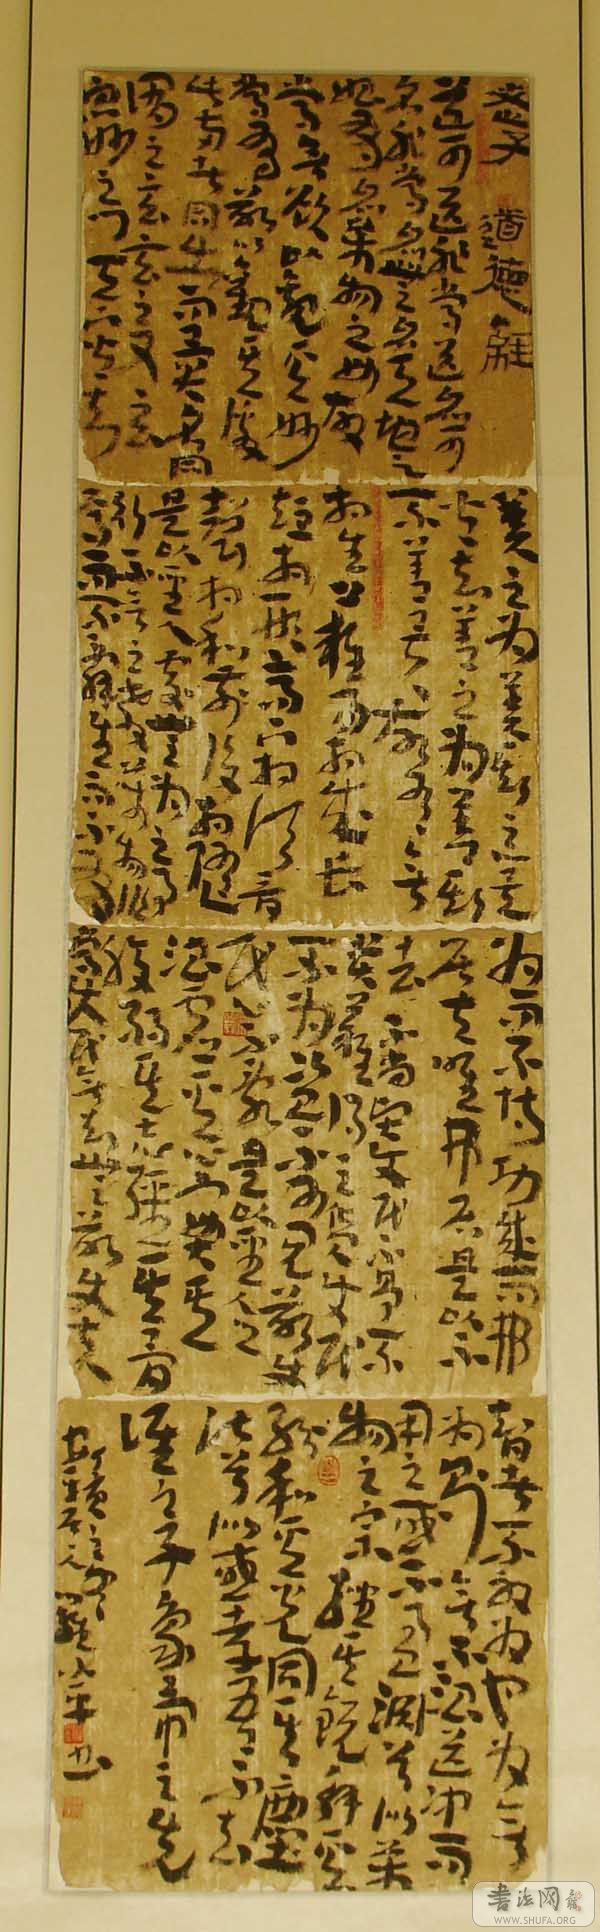 老子 道德經
道可道非常道名可
名非常名無名天地之
始有名萬物之母故
常無欲以觀其妙
常有欲以觀其徼
此兩者同出而異名同
謂之玄玄之又玄
眾妙之門天下皆知
美之为美斯惡已
皆知善之为善斯
不善已故有無
相生難易相成長
短相形高下相傾音
聲相和前後相隨
是以聖人處無为之事
行不言之教萬物作
焉而不辭生而不有
为而不恃功成而弗
居夫唯弗居是以不
去不尚賢使民不爭不
貴難得之貨使民
不为盜不見可欲使
民心不亂是以聖人之
治虛其心實其
腹弱其志強其骨
常使民無知無欲使夫
智者不敢为也为無
为則無不治道沖而
用之或不盈淵兮似萬
物之宗挫其銳解其
紛和其光同其塵
湛兮似或存吾不知
誰之子象帝之先
书
书法网
WWW.SHUFA.ORG